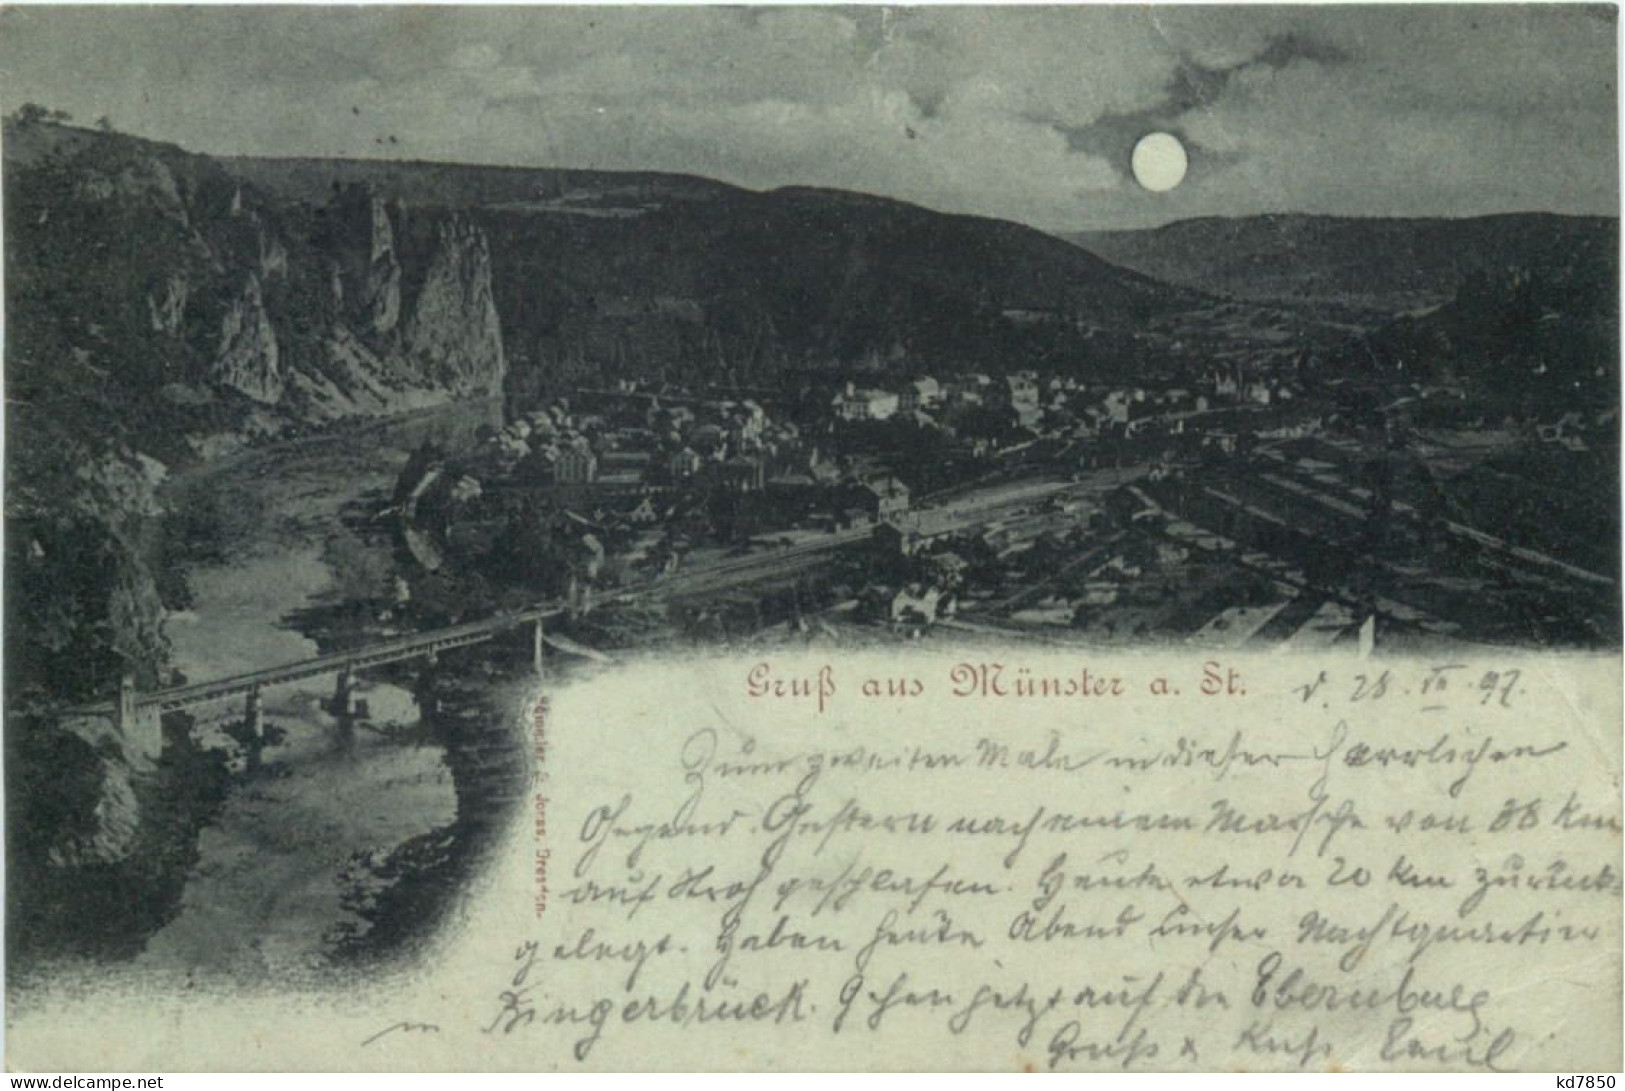 Gruß aus Münster a. St.
d. 28. VII. 97.
Zum zweiten Male in dieser herrlichen
Gegend. Gestern nach einem Marsche von 36 Km
auf Stroh geschlafen. Heute etwa 20 Km zurück-
gelegt. Haben heute Abend unser Nachtquartier
in Bingerbrück. Gehen jetzt auf die Ebernburg
Gruß & Kuß Emil
& Jorss, Dresden.
kd7850